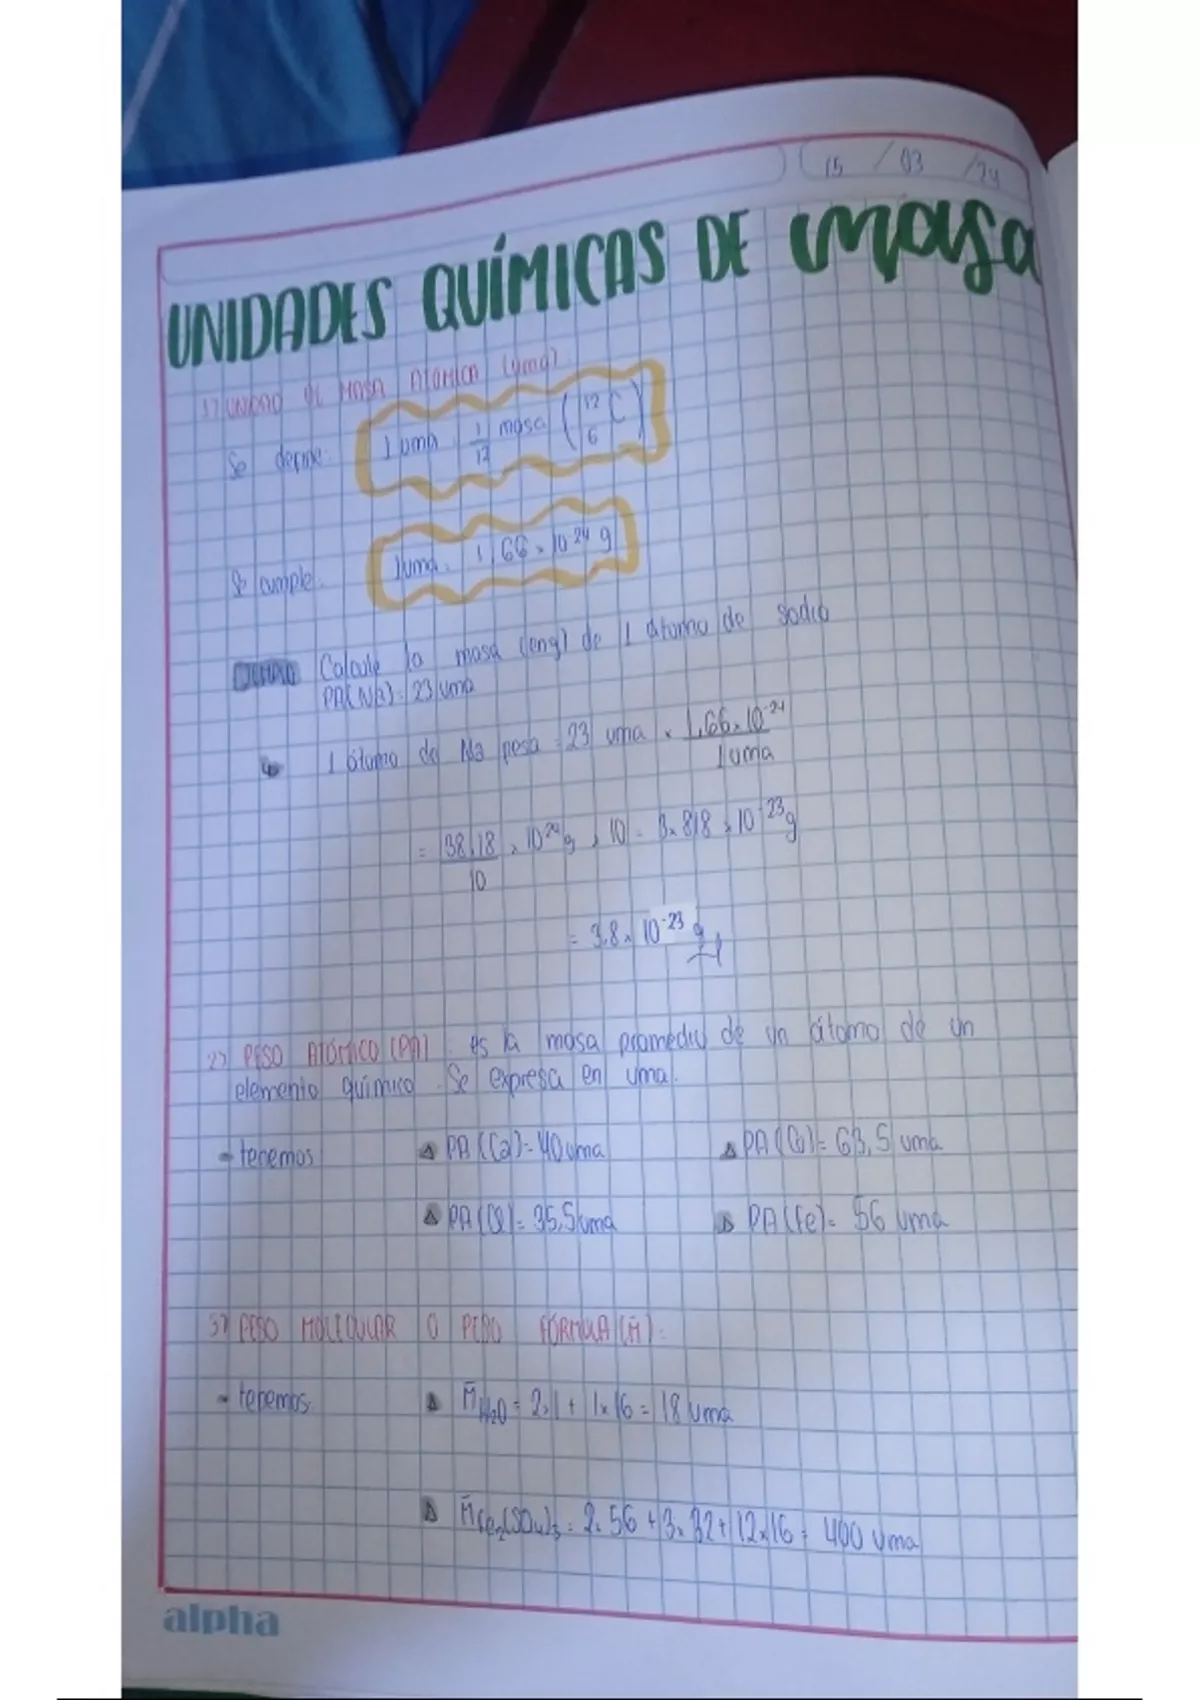 15 / 03 / 24
UNIDADES QUÍMICAS DE masa
1) UNIDAD DE MASA ATOMICA (uma)
Se define: 1 uma = 1/12 masa (12 6 C)
Se cumple: 1uma = 1,66 × 10 24 g
Calcule la masa (en g) de 1 átomo de sodio
PA(Na) = 23 uma
1 átomo de Na pesa = 23 uma × 1,66 × 10⁻²⁴ / 1 uma
= 38,18 / 10 × 10²⁴ g × 10 = 3 × 818 × 10⁻²³ g
= 3.8 × 10⁻²³ g
2) PESO ATÓMICO (PA) : es la masa promedio de un átomo de un
elemento químico. Se expresa en uma.
- tenemos PA (Ca) = 40 uma PA (Cu) = 63,5 uma
PA (Cl) = 35,5 uma PA (Fe) = 56 uma
3) PESO MOLECULAR O PESO FORMULA (M̄) :
- tenemos M̄ H₂O = 2×1 + 1×16 = 18 uma
M̄ Fe₂(SO₄)₃ = 2×56 + 3×32 + 12×16 = 400 uma
alpha